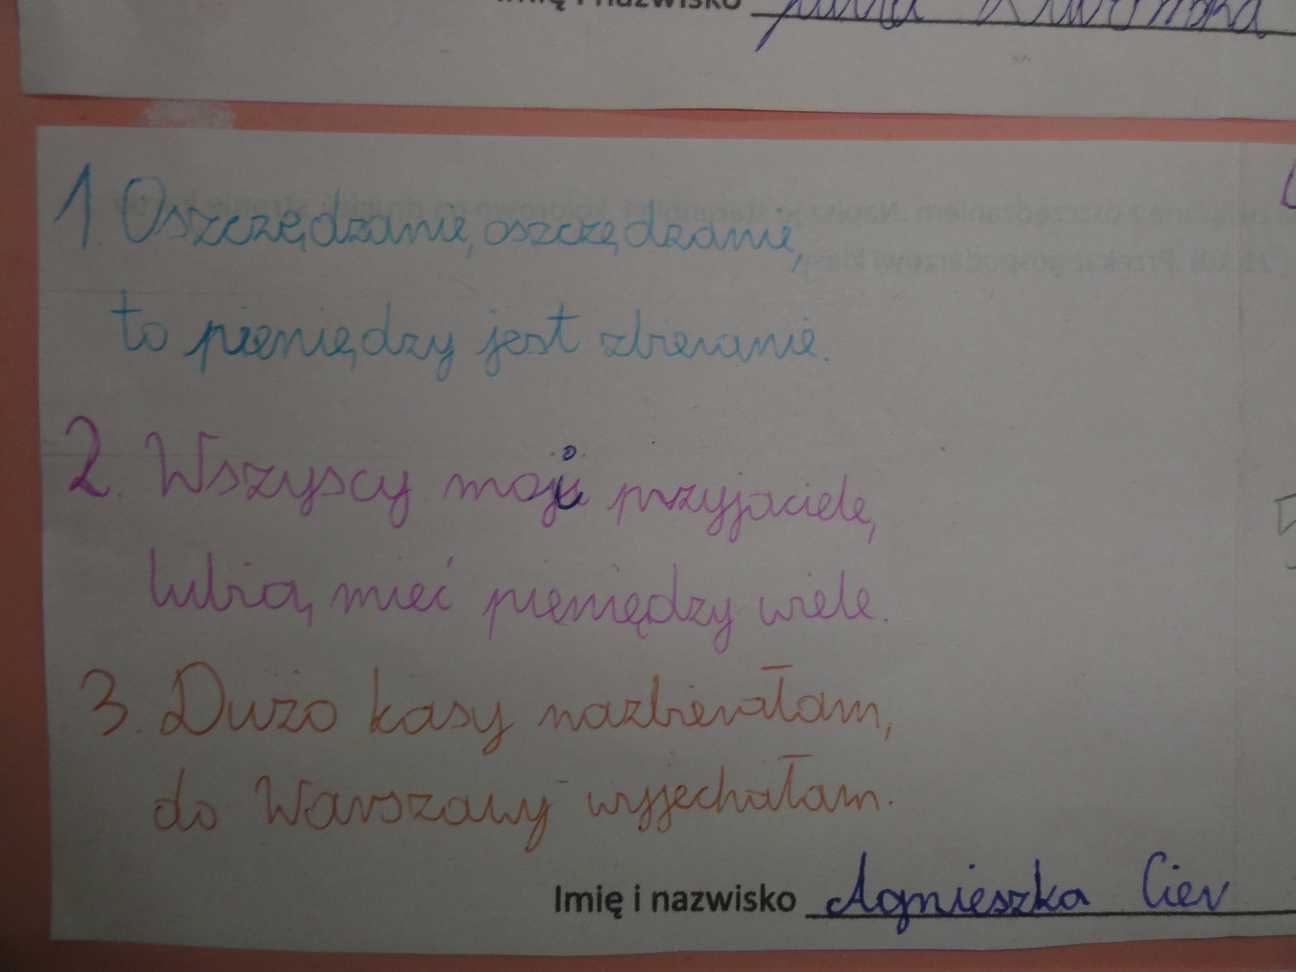 Imię i nazwisko
1. Oszczędzanie, oszczędzanie,
to pieniędzy jest zbieranie.
2. Wszyscy moi przyjaciele,
lubią mieć pieniędzy wiele.
3. Dużo kasy nazbierałam,
do Warszawy wyjechałam.
Imię i nazwisko Agnieszka Cier